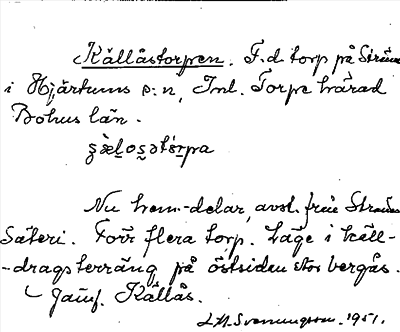 Källåstorpen. F.d torp på Ströms
i Hjärtums s:n, Inl. Torpe härad
Bohus län.
Nu hem.-delar, avst. från Ströms
Säteri. Förr flera torp. Läge i käll-
-dragsterräng på östsidan stor bergås.
Jämf. Källås.
L.M. Svenungsson. 1951.